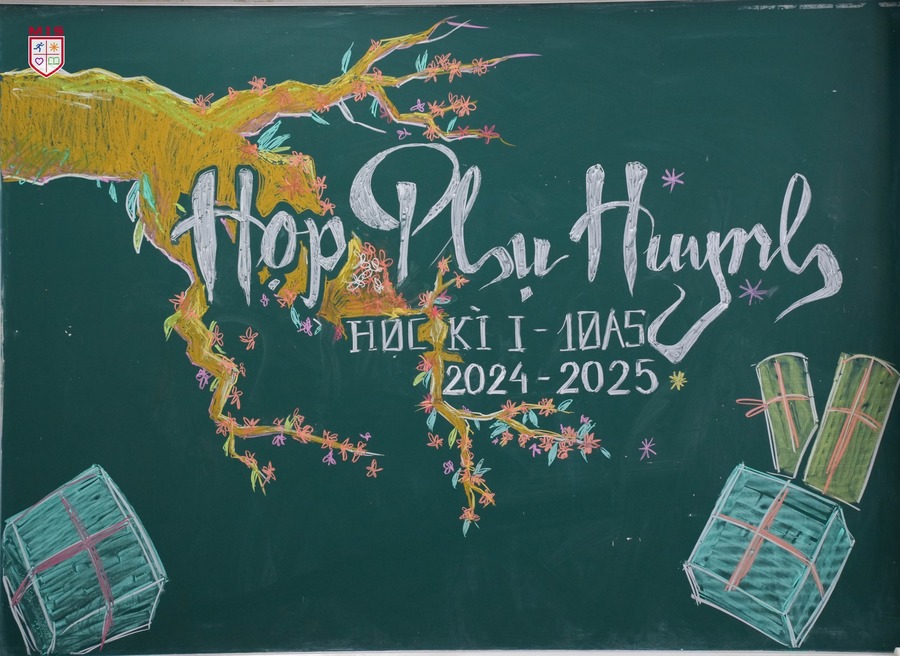 MIS
Họp Phụ Huynh
HỌC KÌ I - 10A5
2024 - 2025